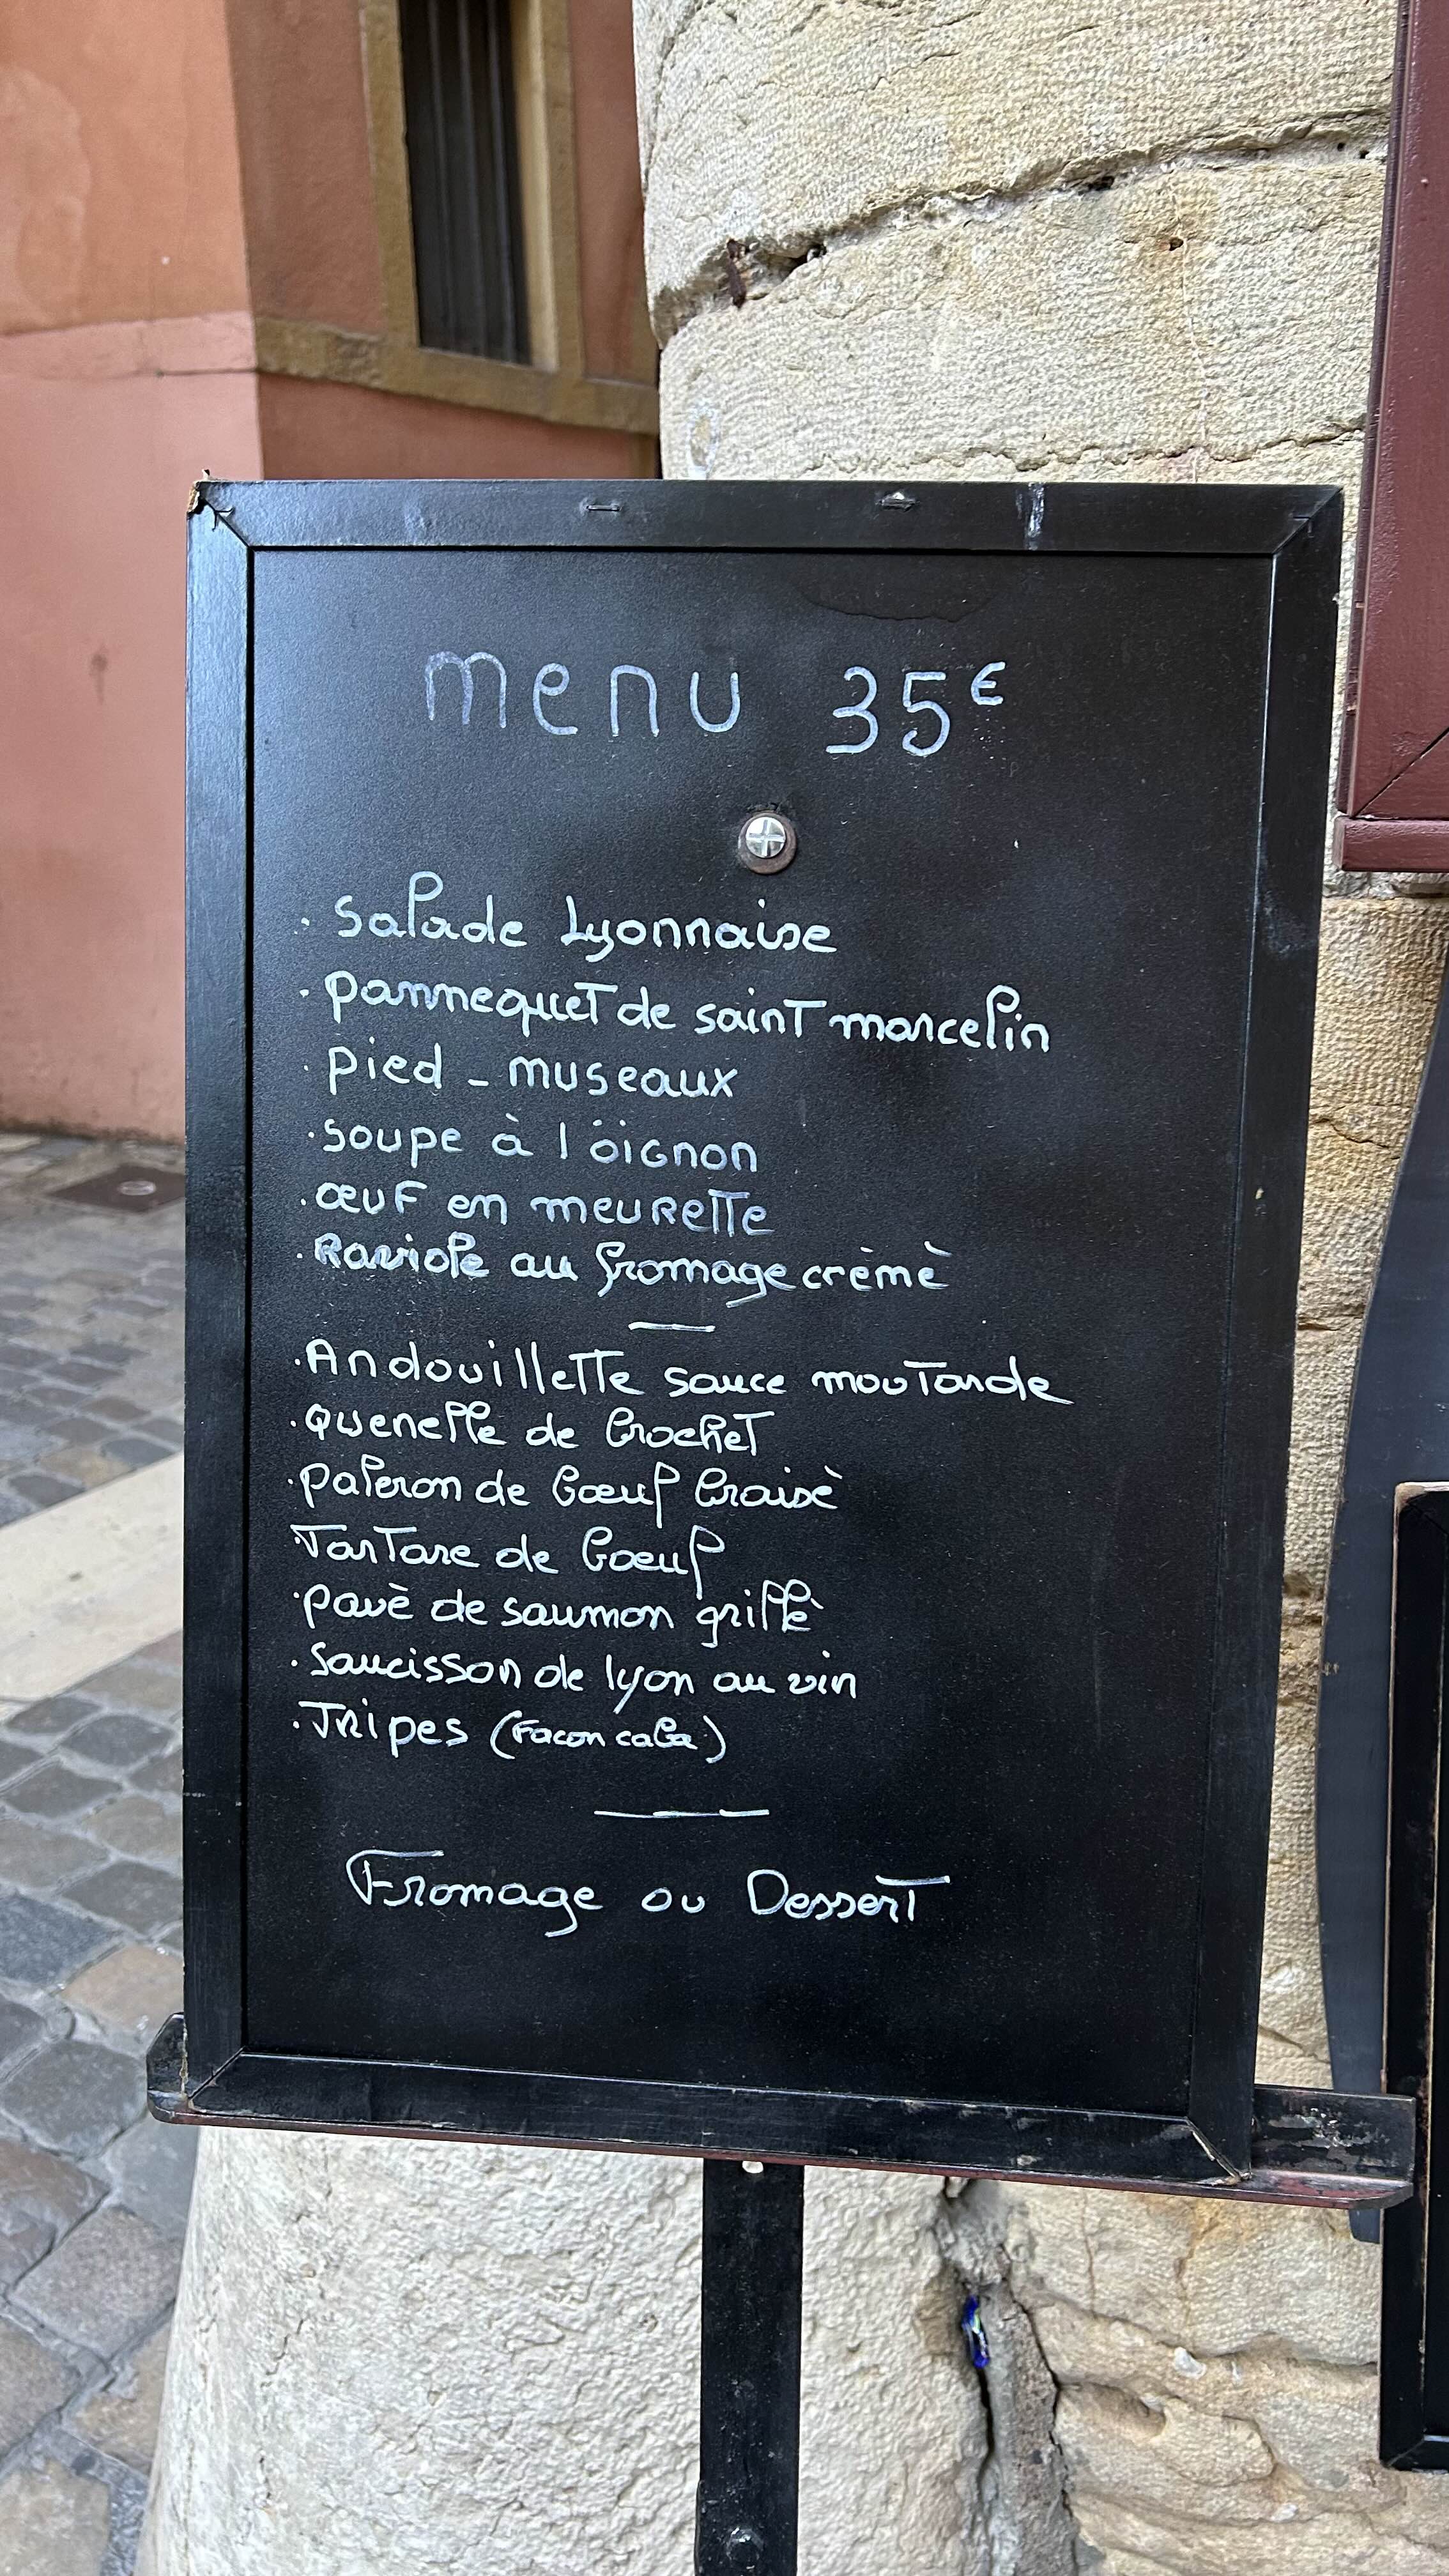 menu 35€
· salade Lyonnaise
· pannequet de saint marcelin
· pied - museaux
· soupe à l'oignon
· œuf en meurette
· Raviole au fromage crèmè
· Andouillette sauce moutarde
· Quenelle de brochet
· paleron de bœuf braisè
· Tartare de bœuf
· pavè de saumon grillè
· saucisson de lyon au vin
· Tripes (Facon caba)
Fromage ou Dessert